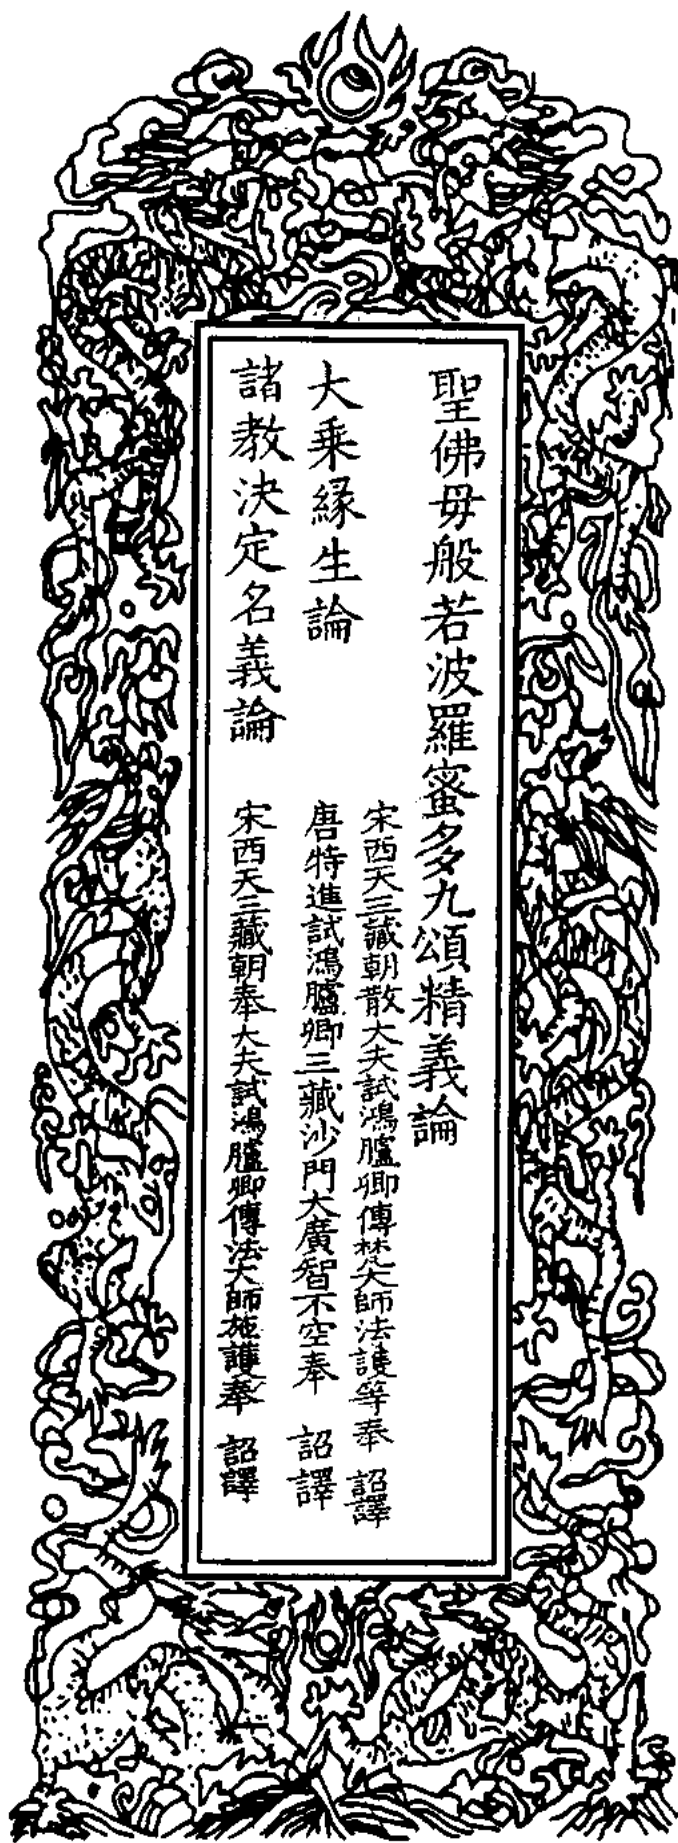 聖佛毋般若波羅蜜多九頌精義論
宋西天三藏朝散大夫試鴻臚卿傳梵大師法護等奉 詔譯
大乗緣生論
唐特進試鴻臚卿三藏沙門大廣智不空奉 詔譯
諸教決定名義論
宋西天三藏朝奉大夫試鴻臚卿傳法大師施護奉 詔譯